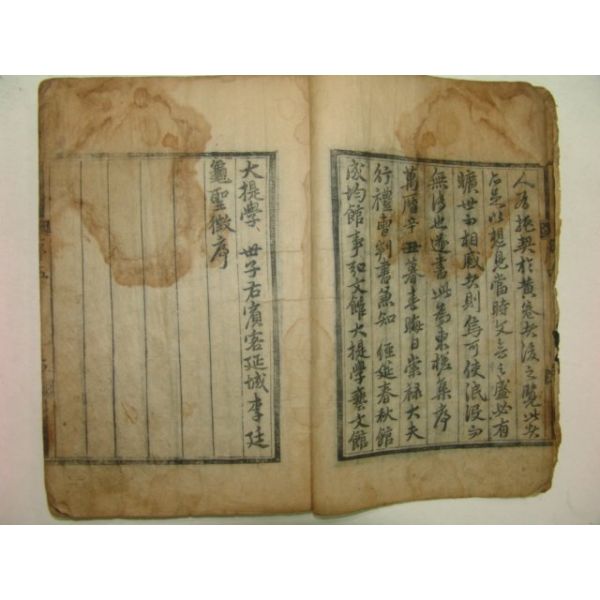 人者抱契於黃卷矣後之覽此失
足以想見當時文之盛必有
曠世而相感矣則烏可使泯沒而
無傳也遂書此為東槎集序
萬曆辛丑暮春晦日崇祿大夫
行禮曹判書兼知 經延春秋館
成均館事知文館大提學藝文館
大提學 世子右賓客延城李廷
龜聖徵序